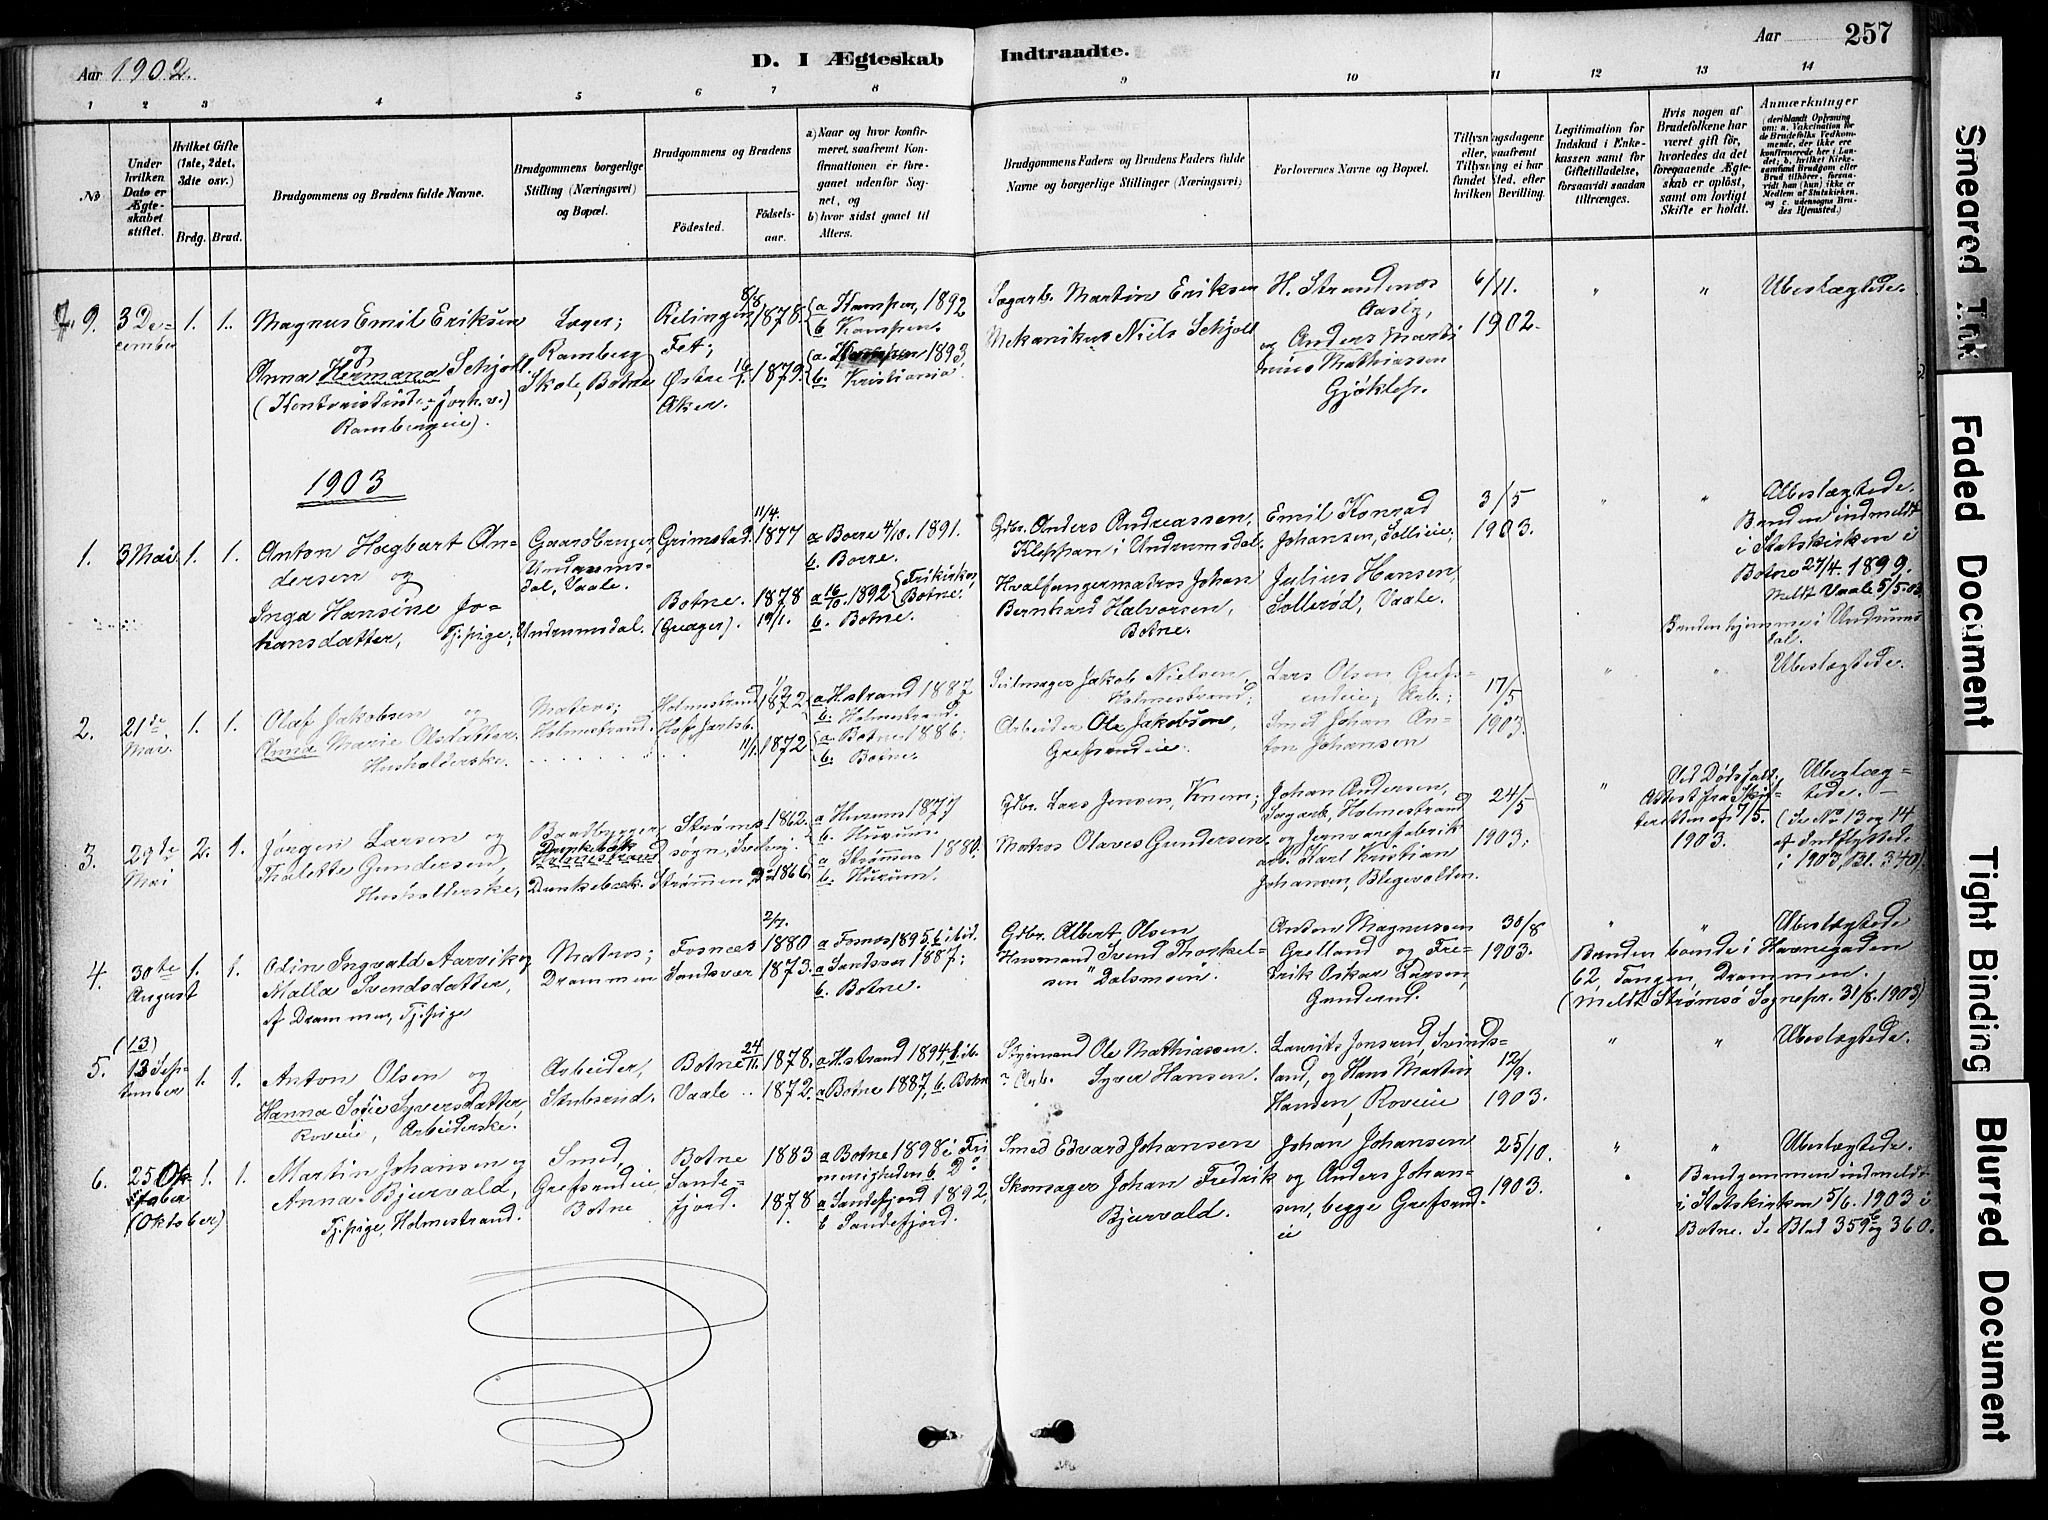 Aar 1902.
D. I Ægteskab Indtraadte.
Aar 257
1 2 3 4 5 6 7 8 9 10 11 12 13 14
No
Under hvilken Dato er Ægteskabet stiftet.
Hvilket Gifte (1ste, 2det, 3die osv.)
Brdg. Brud.
Brudgommens og Brudens fulde Navne.
Brudgommens borgerlige Stilling (Næringsvei) og Bopæl.
Brudgommens og Brudens
Födested. Födsels-aar.
a) Naar og hvor konfirmeret, saafremt Konfirmationen er foregaaet udenfor Sognet, og
b) hvor sidst gaaet til Alters.
Brudgommens Faders og Brudens Faders fulde Navne og borgerlige Stillinger (Næringsvei)
Forlovernes Navne og Bopæl.
Tillysningsdagene eller, saafremt Tillysning ei har fundet Sted, efter hvilken Bevilling.
Legitimation for Indskud i Enkekassen samt for Giftetilladelse, forsaavidt saadan tiltrænges.
Hvis nogen af Brudefolkene har været gift för, hvorledes da det foregaaende Ægteskab er oplöst, samt om lovligt Skifte er holdt.
Anmærkninger (deriblandt Oplysning om: a. Vakcination for de Brudefolks Vedkommende, der ikke ere konfirmerede her i Landet; b. hvilket Kirkesamfund Brudgom eller Brud tilhörer, forsaavidt han (hun) ikke er Medlem af Statskirken, og c. udensogns Brudes Hjemsted.)
9. 3 December 1. 1.
Magnus Emil Eriksen
og
Anna Hermana Schjoll
Rambergeie).
Ramberg
Skole, Botne
Relingen
Fet;
Østre
Aker.
8/8 1878.
1879.
a Kampen, 1892
b Kampen.
1893,
b. Kristiania.
Sagarb. Martin Eriksen
Mekanikus Niels Schjoll
H. Strandmos
og Anders Marti
nius Mathiassen
Gjøklep.
6/11.
1902.
" "
Ubeslægtede.
1903
1. 3 Mai 1. 1.
Anton Hagbart An-
dersen og
Inga Hansine Jo-
hansdatter, Tj.pige;
Gaardbruger,
Undrums-
dal, Vaale.
Undrumsdal.
Grimstad.
Botne.
11/4. 1877
1878
19/1.
a. Borre 4/10. 1891.
b. Borre.
a 16/10. 1892 { Frikirken, Botne.
b. Botne.
Gdbr. Anders Andreassen,
Kleppan i Undrumsdal.
Hvalfangermatros Johan
Bernhard Halvorsen,
Botne.
Emil Konrad
Johansen, Sollieie;
Julius Hansen,
Sollerød, Vaale.
3/5
1903.
" "
Ubeslægtede.
Bruden indmeldt
i Statskirken i
Botne 27/4. 1899.
Meldt Vaale 5/5.03
Bruden hjemme i Undrums
dal.
2. 21de Mai. 1. 1.
Olaf Jakobsen og
Anna Marie Olsdatter
Husholderske.
Matros;
Holmestrand.
Holmestrand
Hof Jarlsb.
1872
11/1. 1872
a. Hstrand 1887
b. Holmestrand.
a. Botne 1886.
b. Botne.
Seilmager Jakob Nielsen,
Holmestrand;
Arbeider Ole Jakobsen,
Grefsrudeie.
Lars Olsen Grefs-
rudeie, Arb.;
Smed Johan An-
ton Johansen
17/5
1903.
" "
Ubeslægtede.
3. 29de Mai 2. 1.
Jørgen Larsen og
Tralette Gundersen,
Husholderske,
Baadbygger,
Dunkebæk
Holmestrand
Dunkebæk.
Strøms-
sogn, Svelvig.
Strømmen,
1862.
1866.
a Hurum 1877
b. Hurum.
a Strømmen 1880.
b. Hurum.
Gdbr. Lars Jensen, Knem;
Matros Olaves Gundersen.
Johan Andersen,
Sagarb. Holmestrand
og Jernvarefabrik
arb. Karl Kristian
Johansen, Blegevolden.
24/5
1903.
"
Ved Dødsfald.
Attest fra Skif-
teretten af 7/5.
1903.
Ubeslæg-
tede. —
(se No 13 og 14
af Indflyttede
i 1907, Bl. 340)
4. 30te August 1. 1.
Odin Ingvald Aarvik og
Malla Svendsdatter,
af Drammen, Tj.pige
Matros;
Drammen
Fosnæs
Sandsvær
2/7. 1880
1873.
a Fosnæs 1895, b ibid.
a Sandsvær 1887;
b. Botne.
Gdbr. Albert Olsen
Husmand Svend Thorkel-
sen Dalsmoen.
Anton Magnussen
Grelland og Fre-
drik Oskar Larsen,
Gunderud.
30/8
1903.
" "
Ubeslægtede
Bruden boende i Havnegaden
62, Tangen, Drammen.
(Meldt Strømsø Sognepr. 31/8. 1903)
(13)
5. 13 September 1. 1.
Anton Olsen og
Hanna Sofie Syversdatter,
Roveie, Arbeiderske.
Arbeider,
Stubsrud.
Botne
Vaale
24/11. 1878.
1872.
a. Hstrand 1894, b ib.
a Botne 1887, b. Botne
Ole Mathiassen.
Arb. Syver Hansen.
Laurits Jonsrud, Svinds-
land, og Hans Martin
Hansen, Roveie
12/9.
1903.
" "
Ubeslægtede.
6. 25 Oktober (Oktober) 1. 1.
Martin Johansen og
Anna Bjervald,
Tj.pige, Holmestrand.
Smed,
Grefsrudeie,
Botne
Botne
Sande-
fjord.
1883
1878
a Botne 1898 i Fri
menigheden b. Do
a Sandefjord 1892,
b Sandefjord.
Smed Edvard Johansen
Skomager Johan Fredrik
Bjervald.
Johan Johansen
og Anders Johan-
sen, begge Grefsrud-
eie
25/10.
1903.
" "
Ubeslægtede.
Brudgommen indmeldt
i Statskirken 5/6. 1903 i
Botne. Se Blad 359b og 360.
Smeared Ink
Faded Document
Tight Binding
Blurred Document